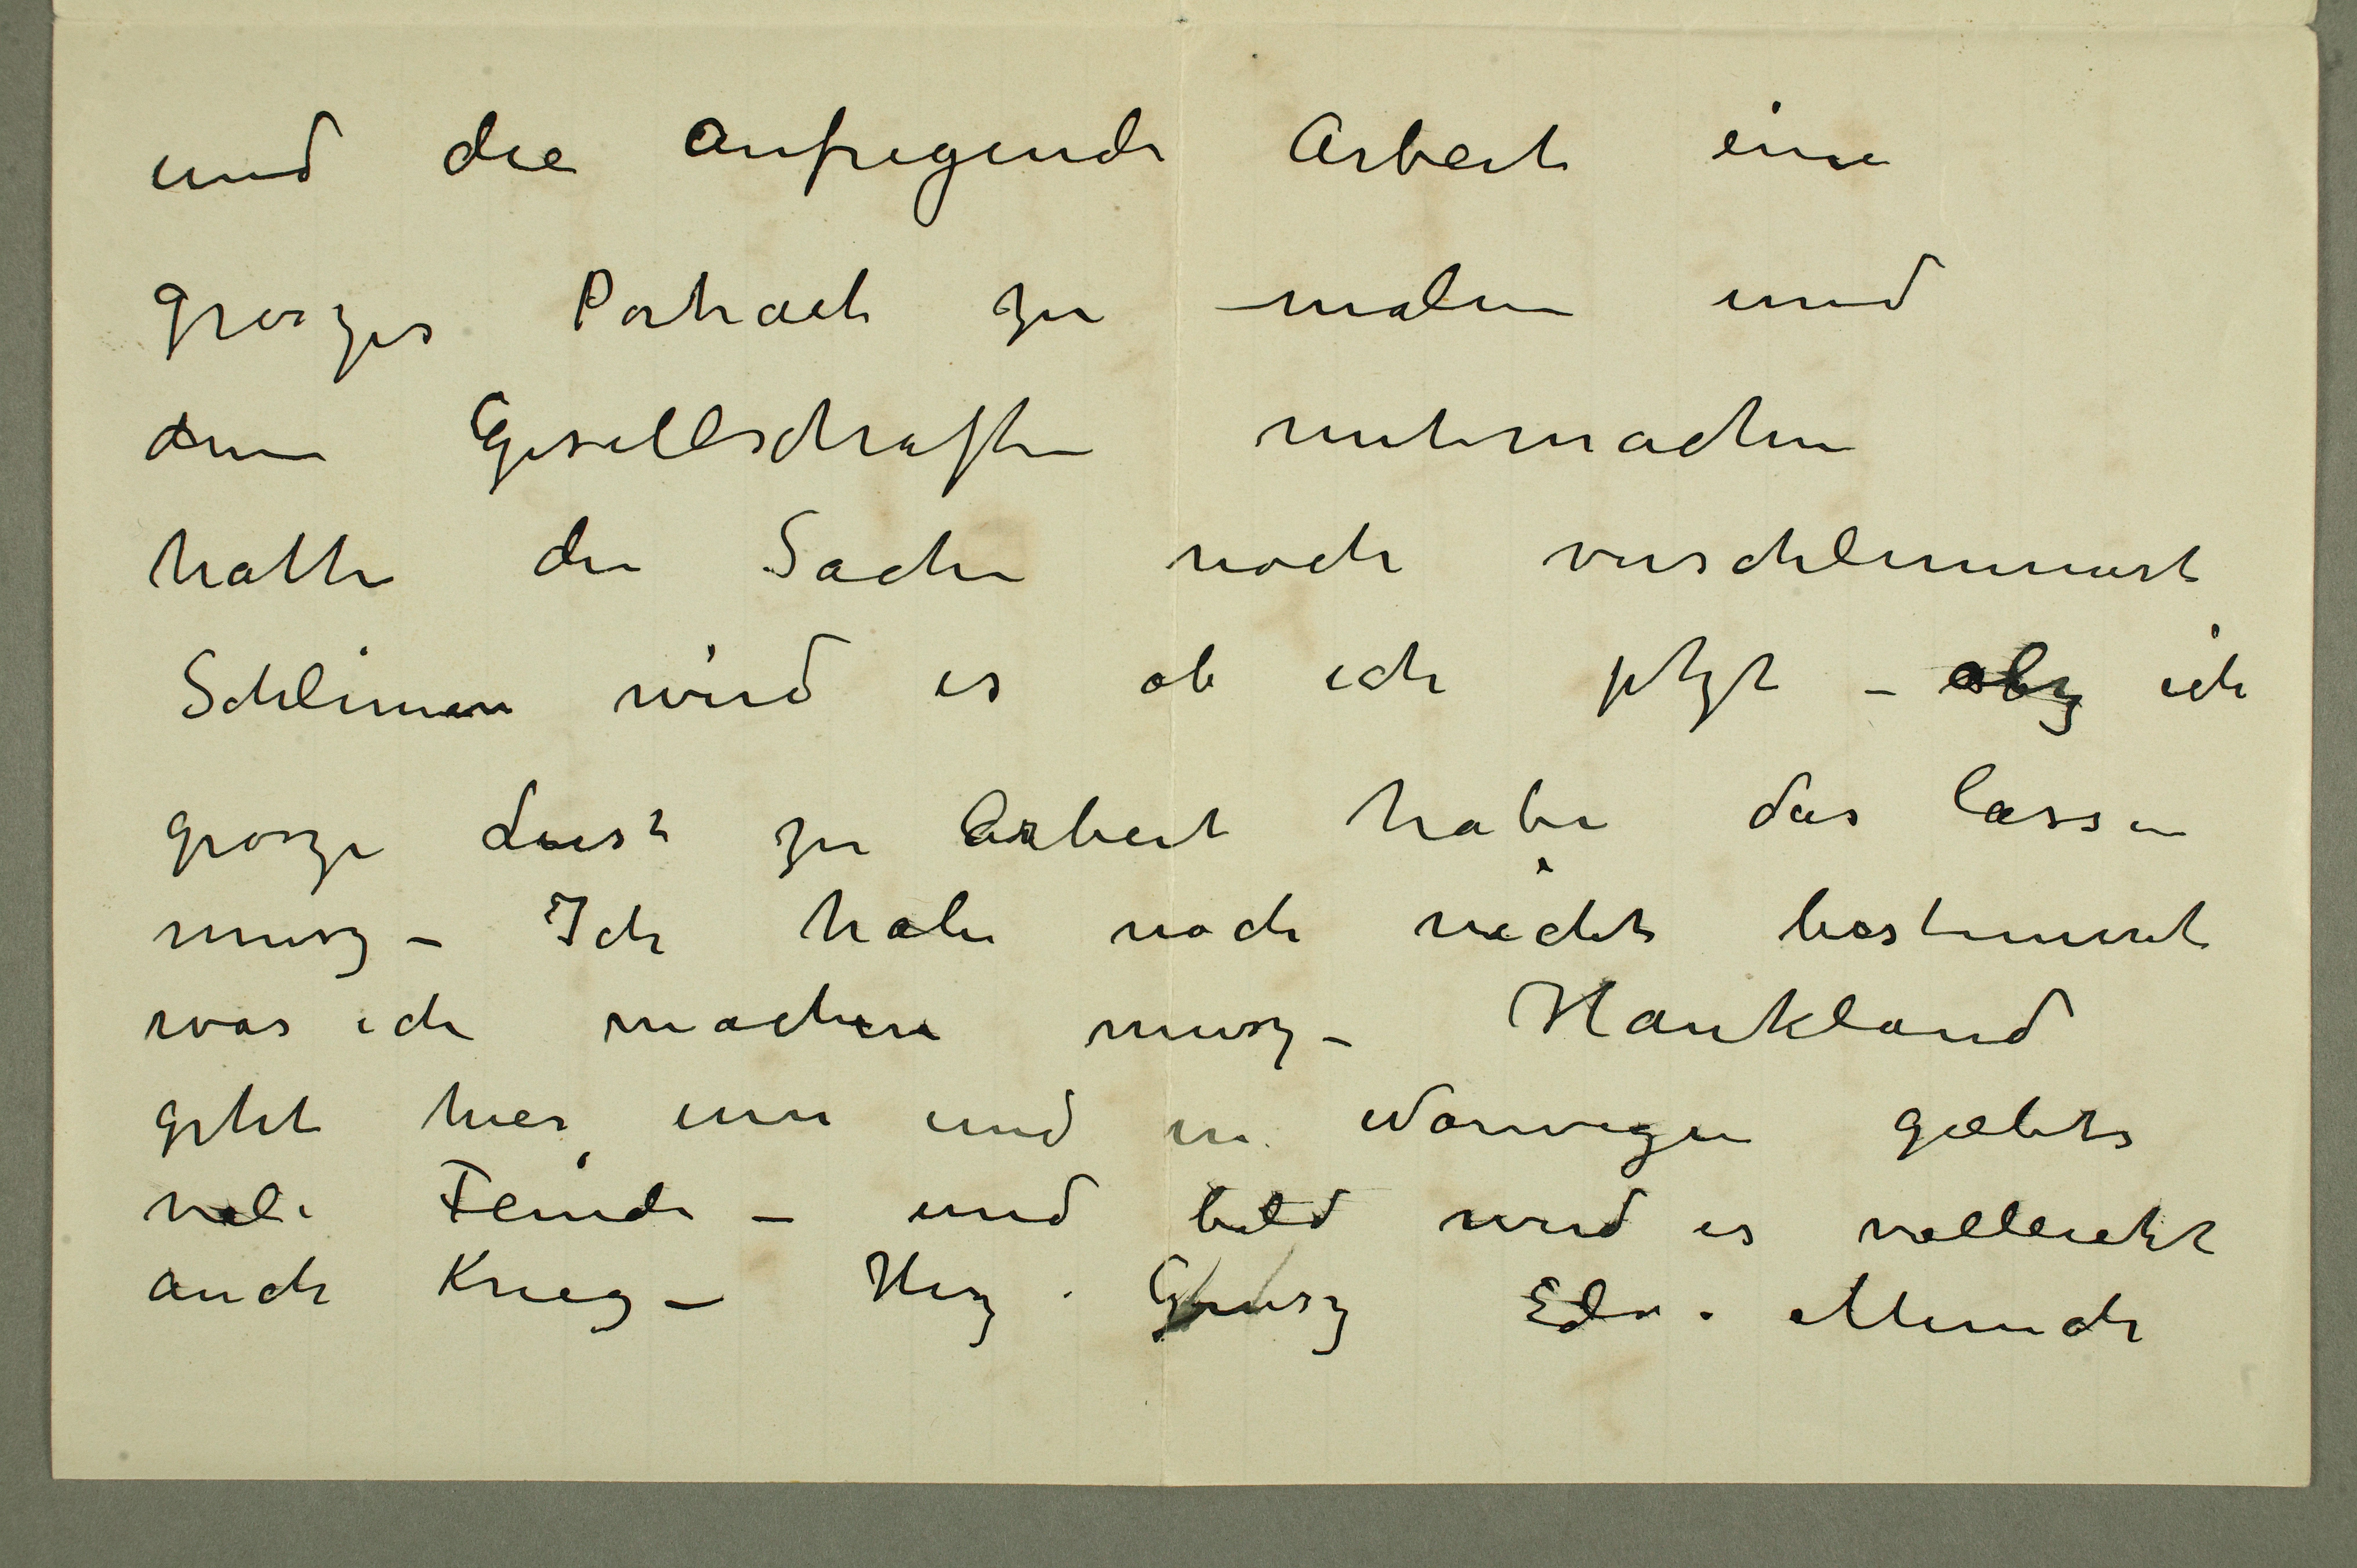 und die aufregende Arbeit eine
groszes Portraet zu malen und
denn Gesellschaften mitmachen
hatte die Sache noch verschlimmert
Schlimm wird es ob ich jetzt – ich
grosze Lust zu Arbeit habe das lassen
musz – Ich habe noch nicht bestimmt
was ich machen musz – Haukland
geht hier um und in Norwegen gæbts
viele Feinde – und bald wird es vielleicht
auch Krieg – Herz. Grusz Edv. Munch